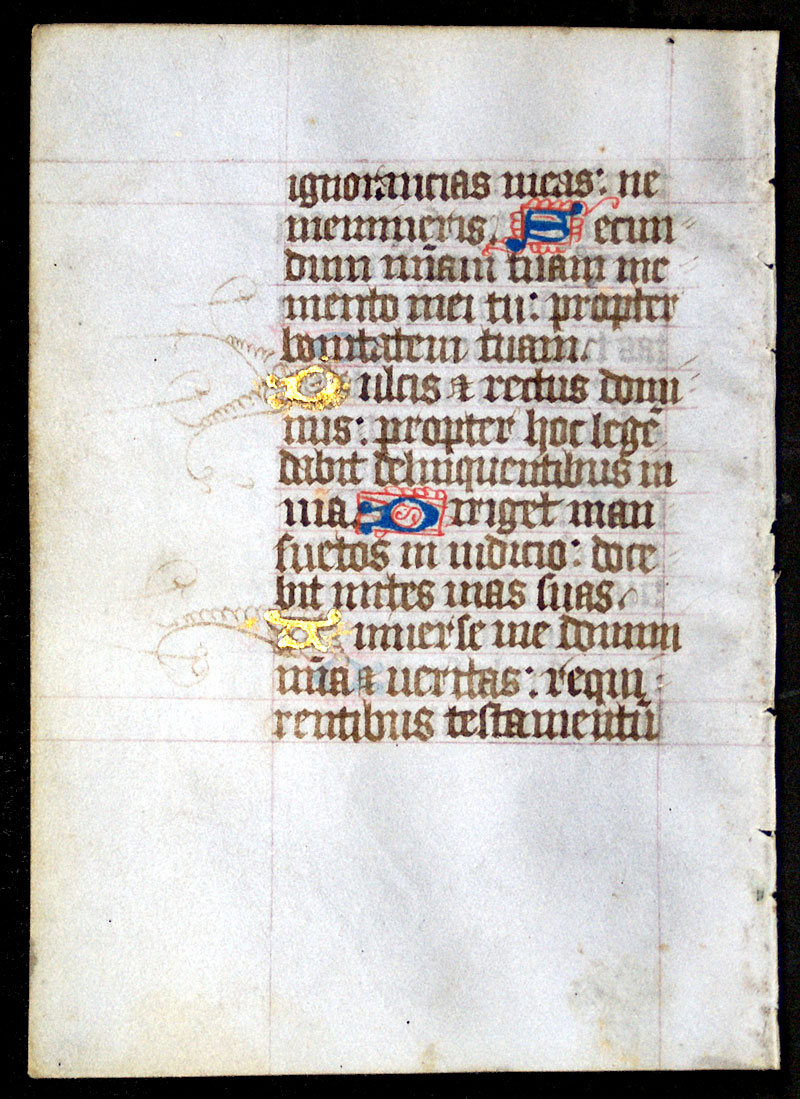 ignorancias meas: ne
memineris. Secun
dum mīam tuam me
mento mei tu: propter
bonitatem tuam.
Dulcis ⁊ rectus domi
nus: propter hoc legē
dabit delinquentibus in
via. Diriget man
suetos in iudicio: doce
bit mites vias suas.
Universe vie domini
mīa ⁊ veritas: requi
rentibus testamentū